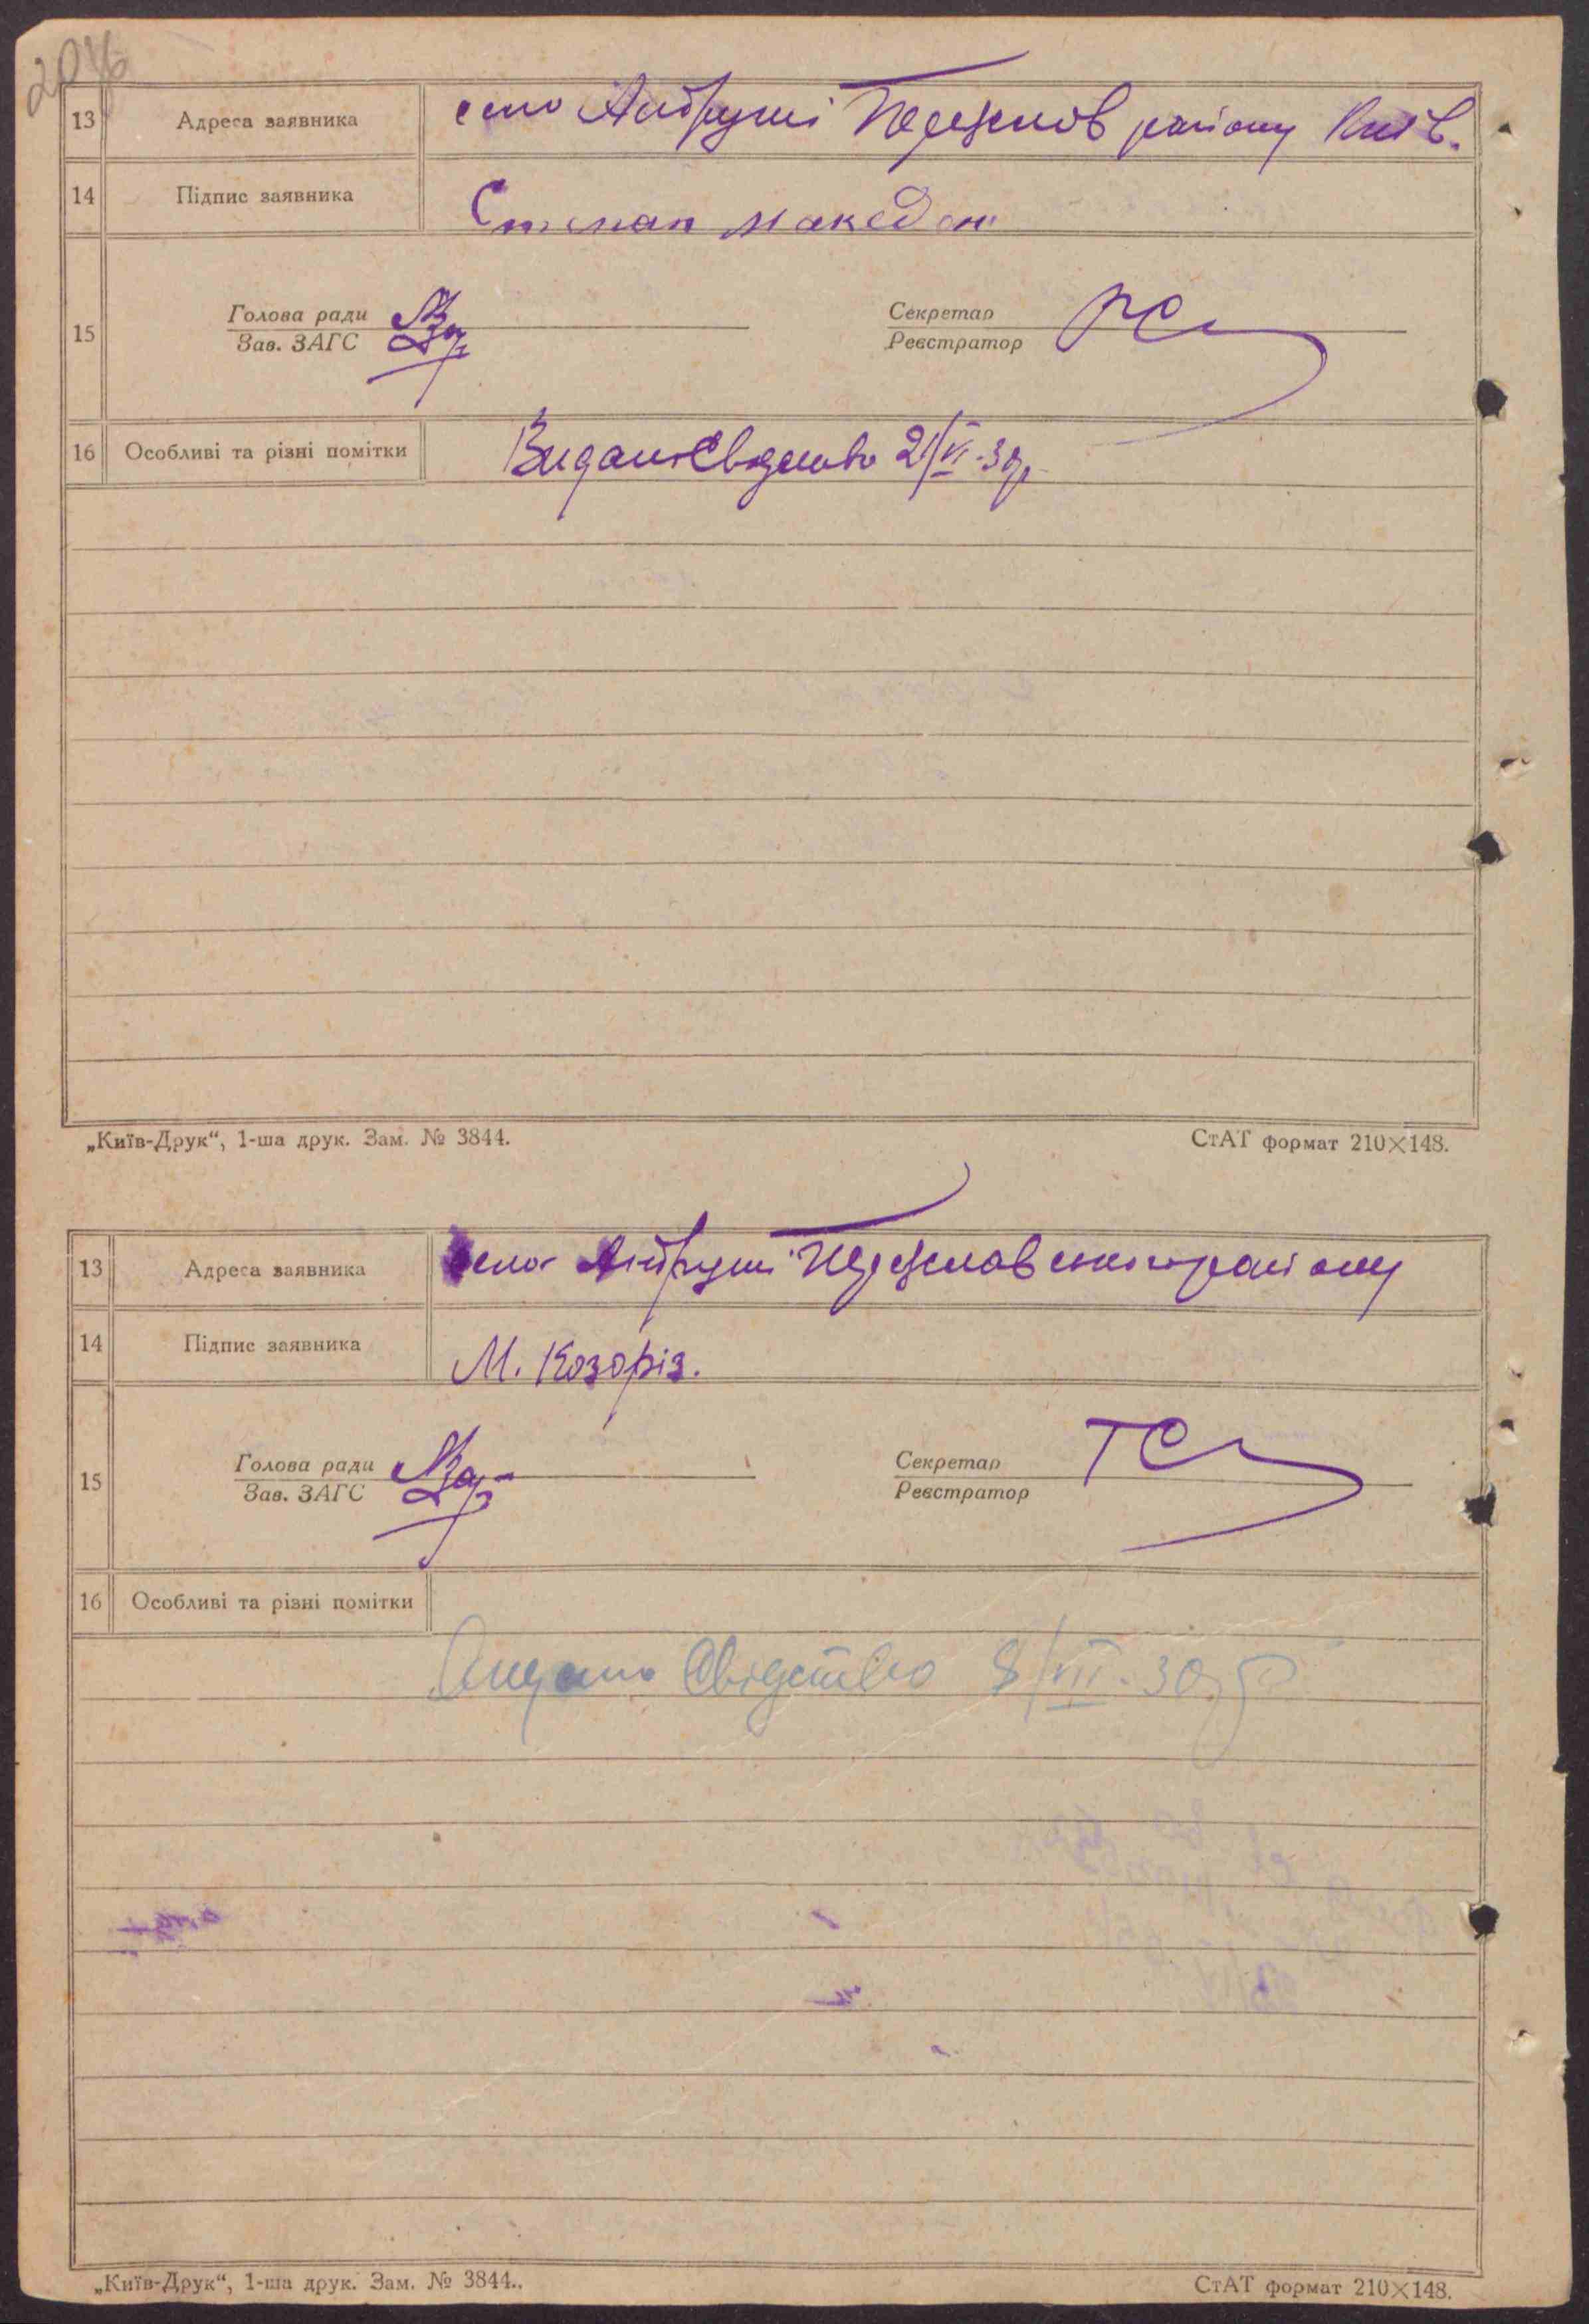 13 Адреса заявника село Андруші Переяслов району Київ.
14 Підпис заявника Степан Македон
15 Голова ради Секретар
Зав. ЗАГС Реєстратор
16 Особливі та різні помітки Видано Свідоцтво 21/VI-30р.
„Київ-Друк“, 1-ша друк. Зам. № 3844. СтАТ формат 210×148.
13 Адреса заявника село Андруші Переяславського району
14 Підпис заявника М. Козоріз.
15 Голова ради Секретар
Зав. ЗАГС Реєстратор
16 Особливі та різні помітки
Видано Свідоцтво 8/VII-30р
„Київ-Друк“, 1-ша друк. Зам. № 3844. СтАТ формат 210×148.